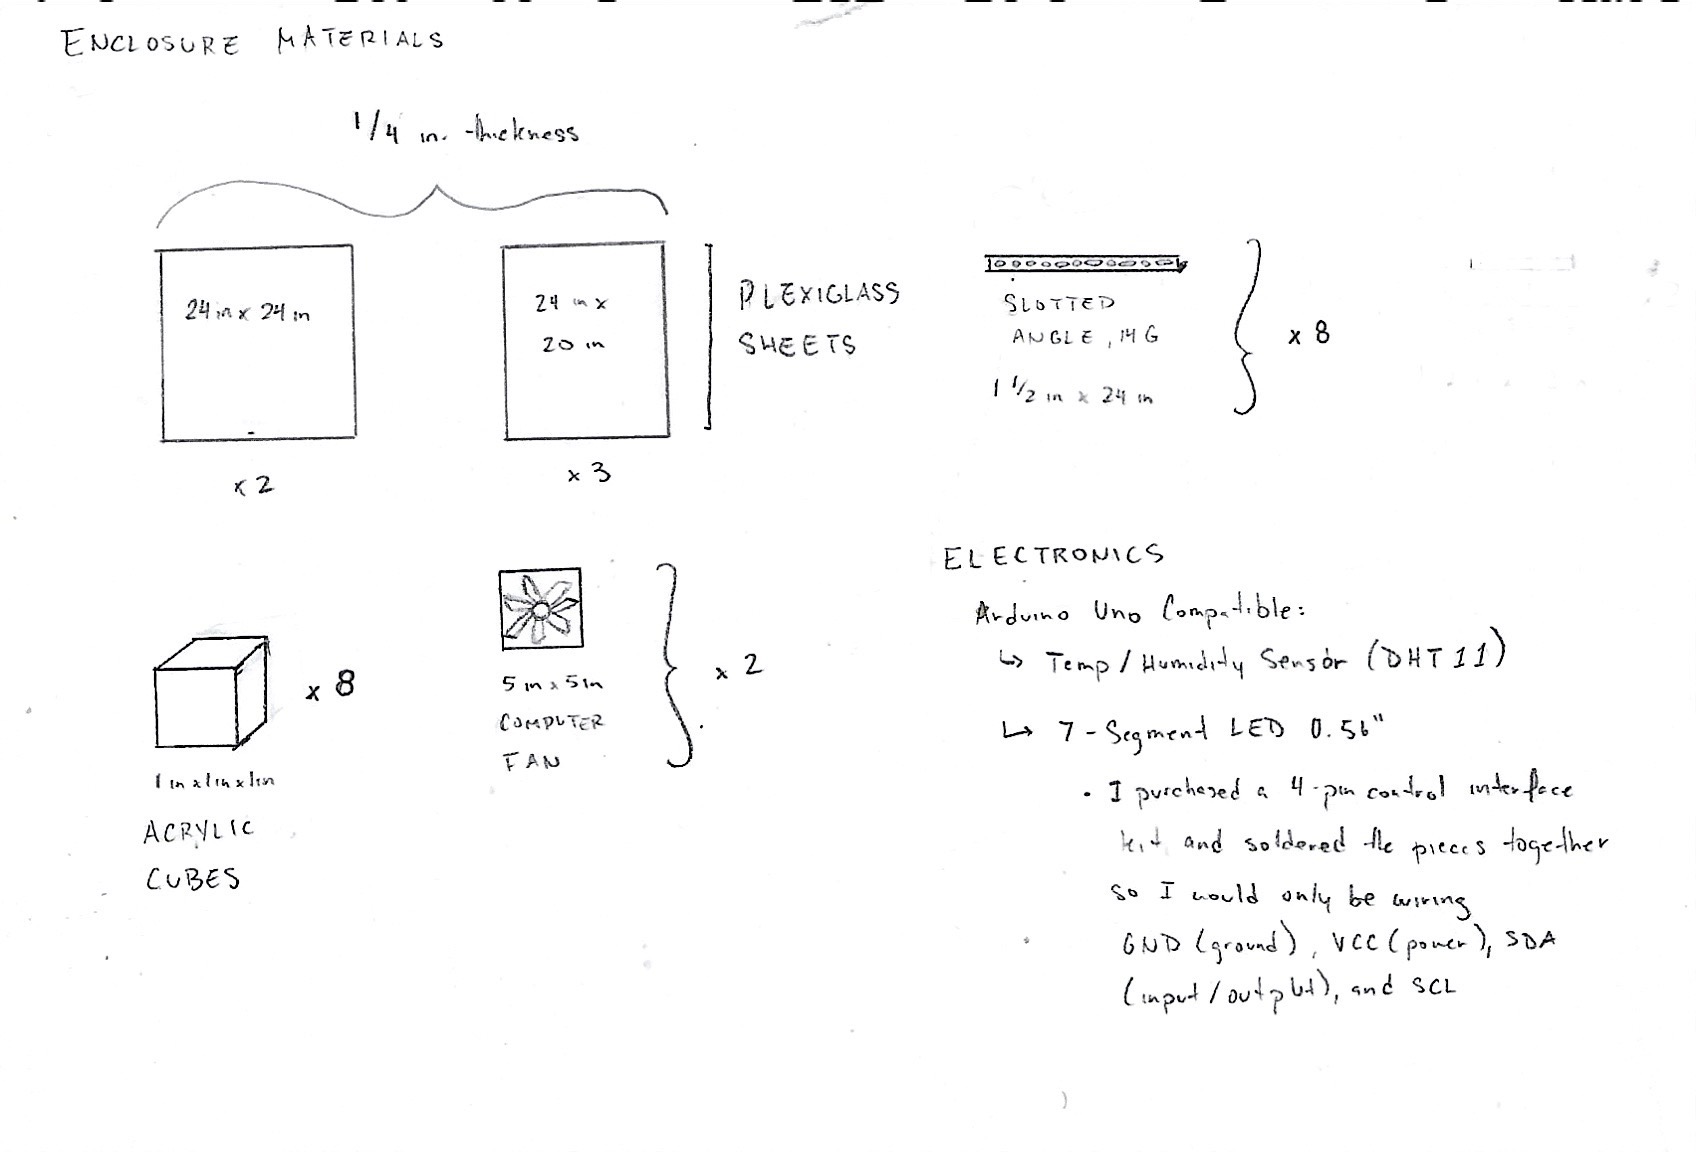 ENCLOSURE MATERIALS
1/4 in. thickness
24 in x 24 in
x 2
24 in x
20 in
x 3
PLEXIGLASS
SHEETS
SLOTTED
ANGLE, 14 G
1 1/2 in x 24 in
x 8
1 in x 1 in x 1 in
ACRYLIC
CUBES
x 8
5 in x 5 in
COMPUTER
FAN
x 2
ELECTRONICS
Arduino Uno Compatible:
↳ Temp / Humidity Sensor (DHT 11)
↳ 7 - Segment LED 0.56"
• I purchased a 4-pin control interface
kit and soldered the pieces together
so I would only be wiring
GND (ground), VCC (power), SDA
(input / output), and SCL